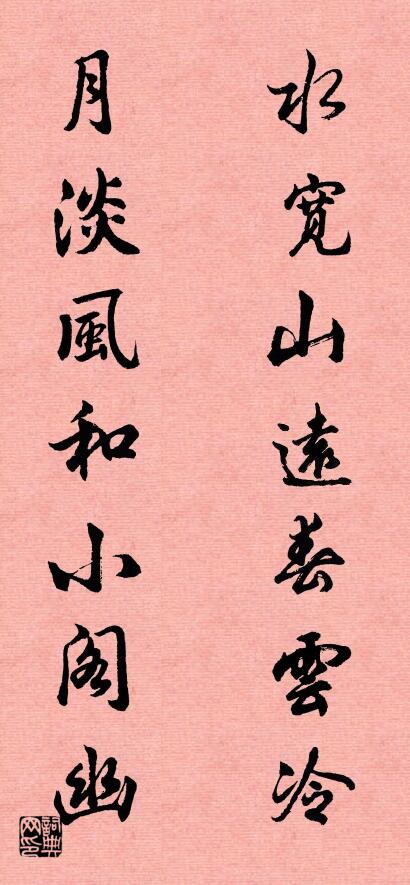 水寬山遠春雲冷
月淡風和小閣幽
詞典网印